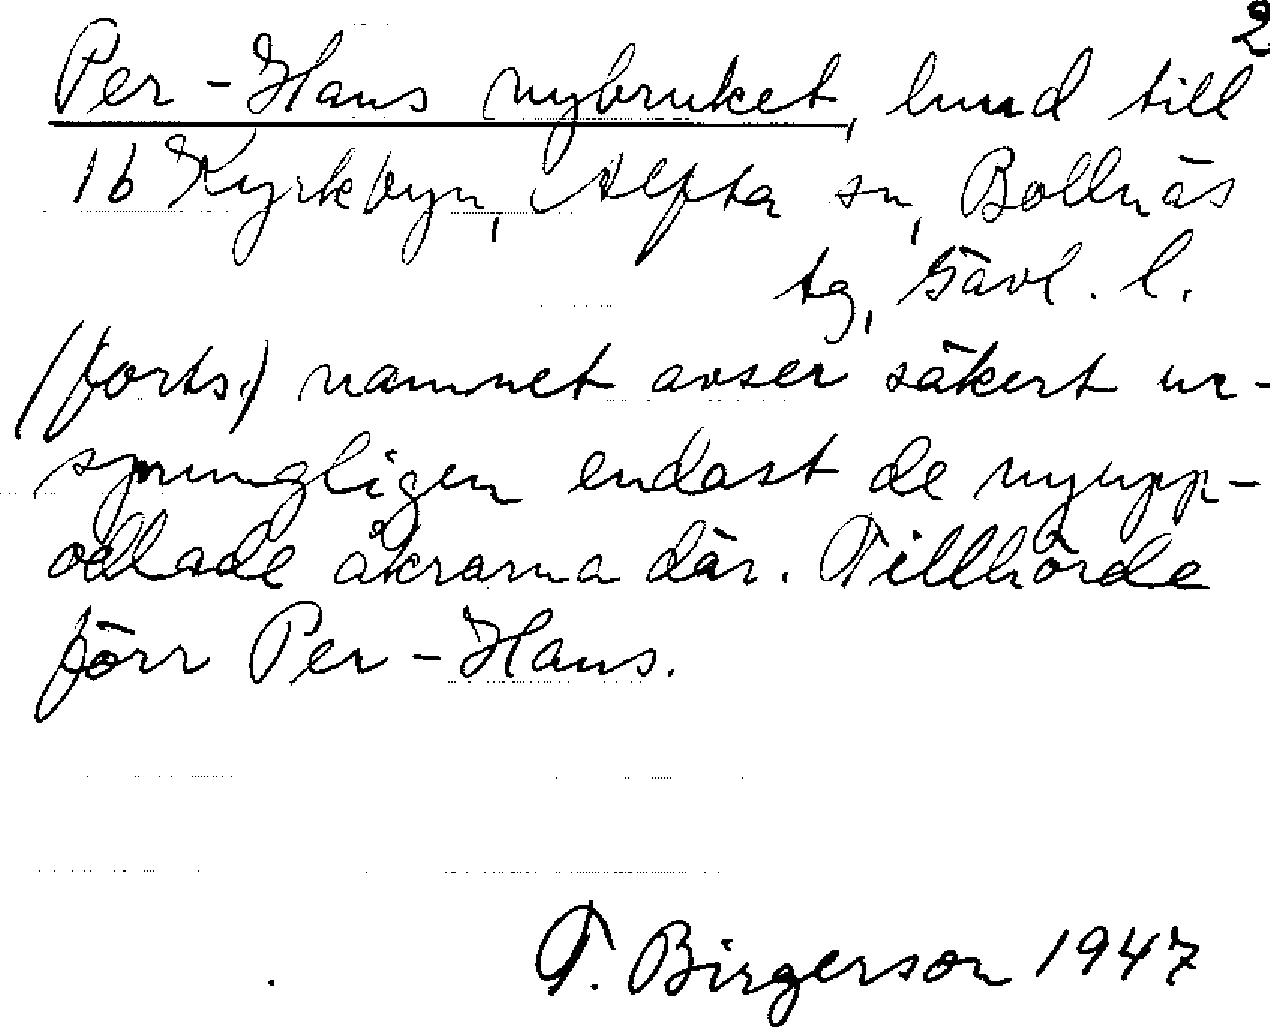 2
Per-Hans nybruket, lund till
16 Kyrkbyn, Alfta sn, Bollnäs
tg, Gävl. l.
(forts.) namnet avser säkert ur-
sprungligen endast de nyupp-
odlade åkrarna där. Tillhörde
förr Per-Hans.
T. Birgerson 1947